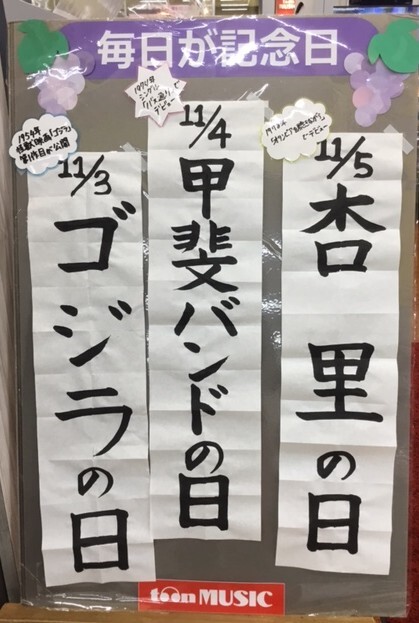 毎日が記念日
1954年
怪獣映画「ゴジラ」
第1作目が公開
11/3
ゴジラの日
1974年
シングル
「バス通り」で
デビュー
11/4
甲斐バンドの日
1978年
「オリビアを聴きながら」
でデビュー
11/5
杏里の日
toon MUSIC